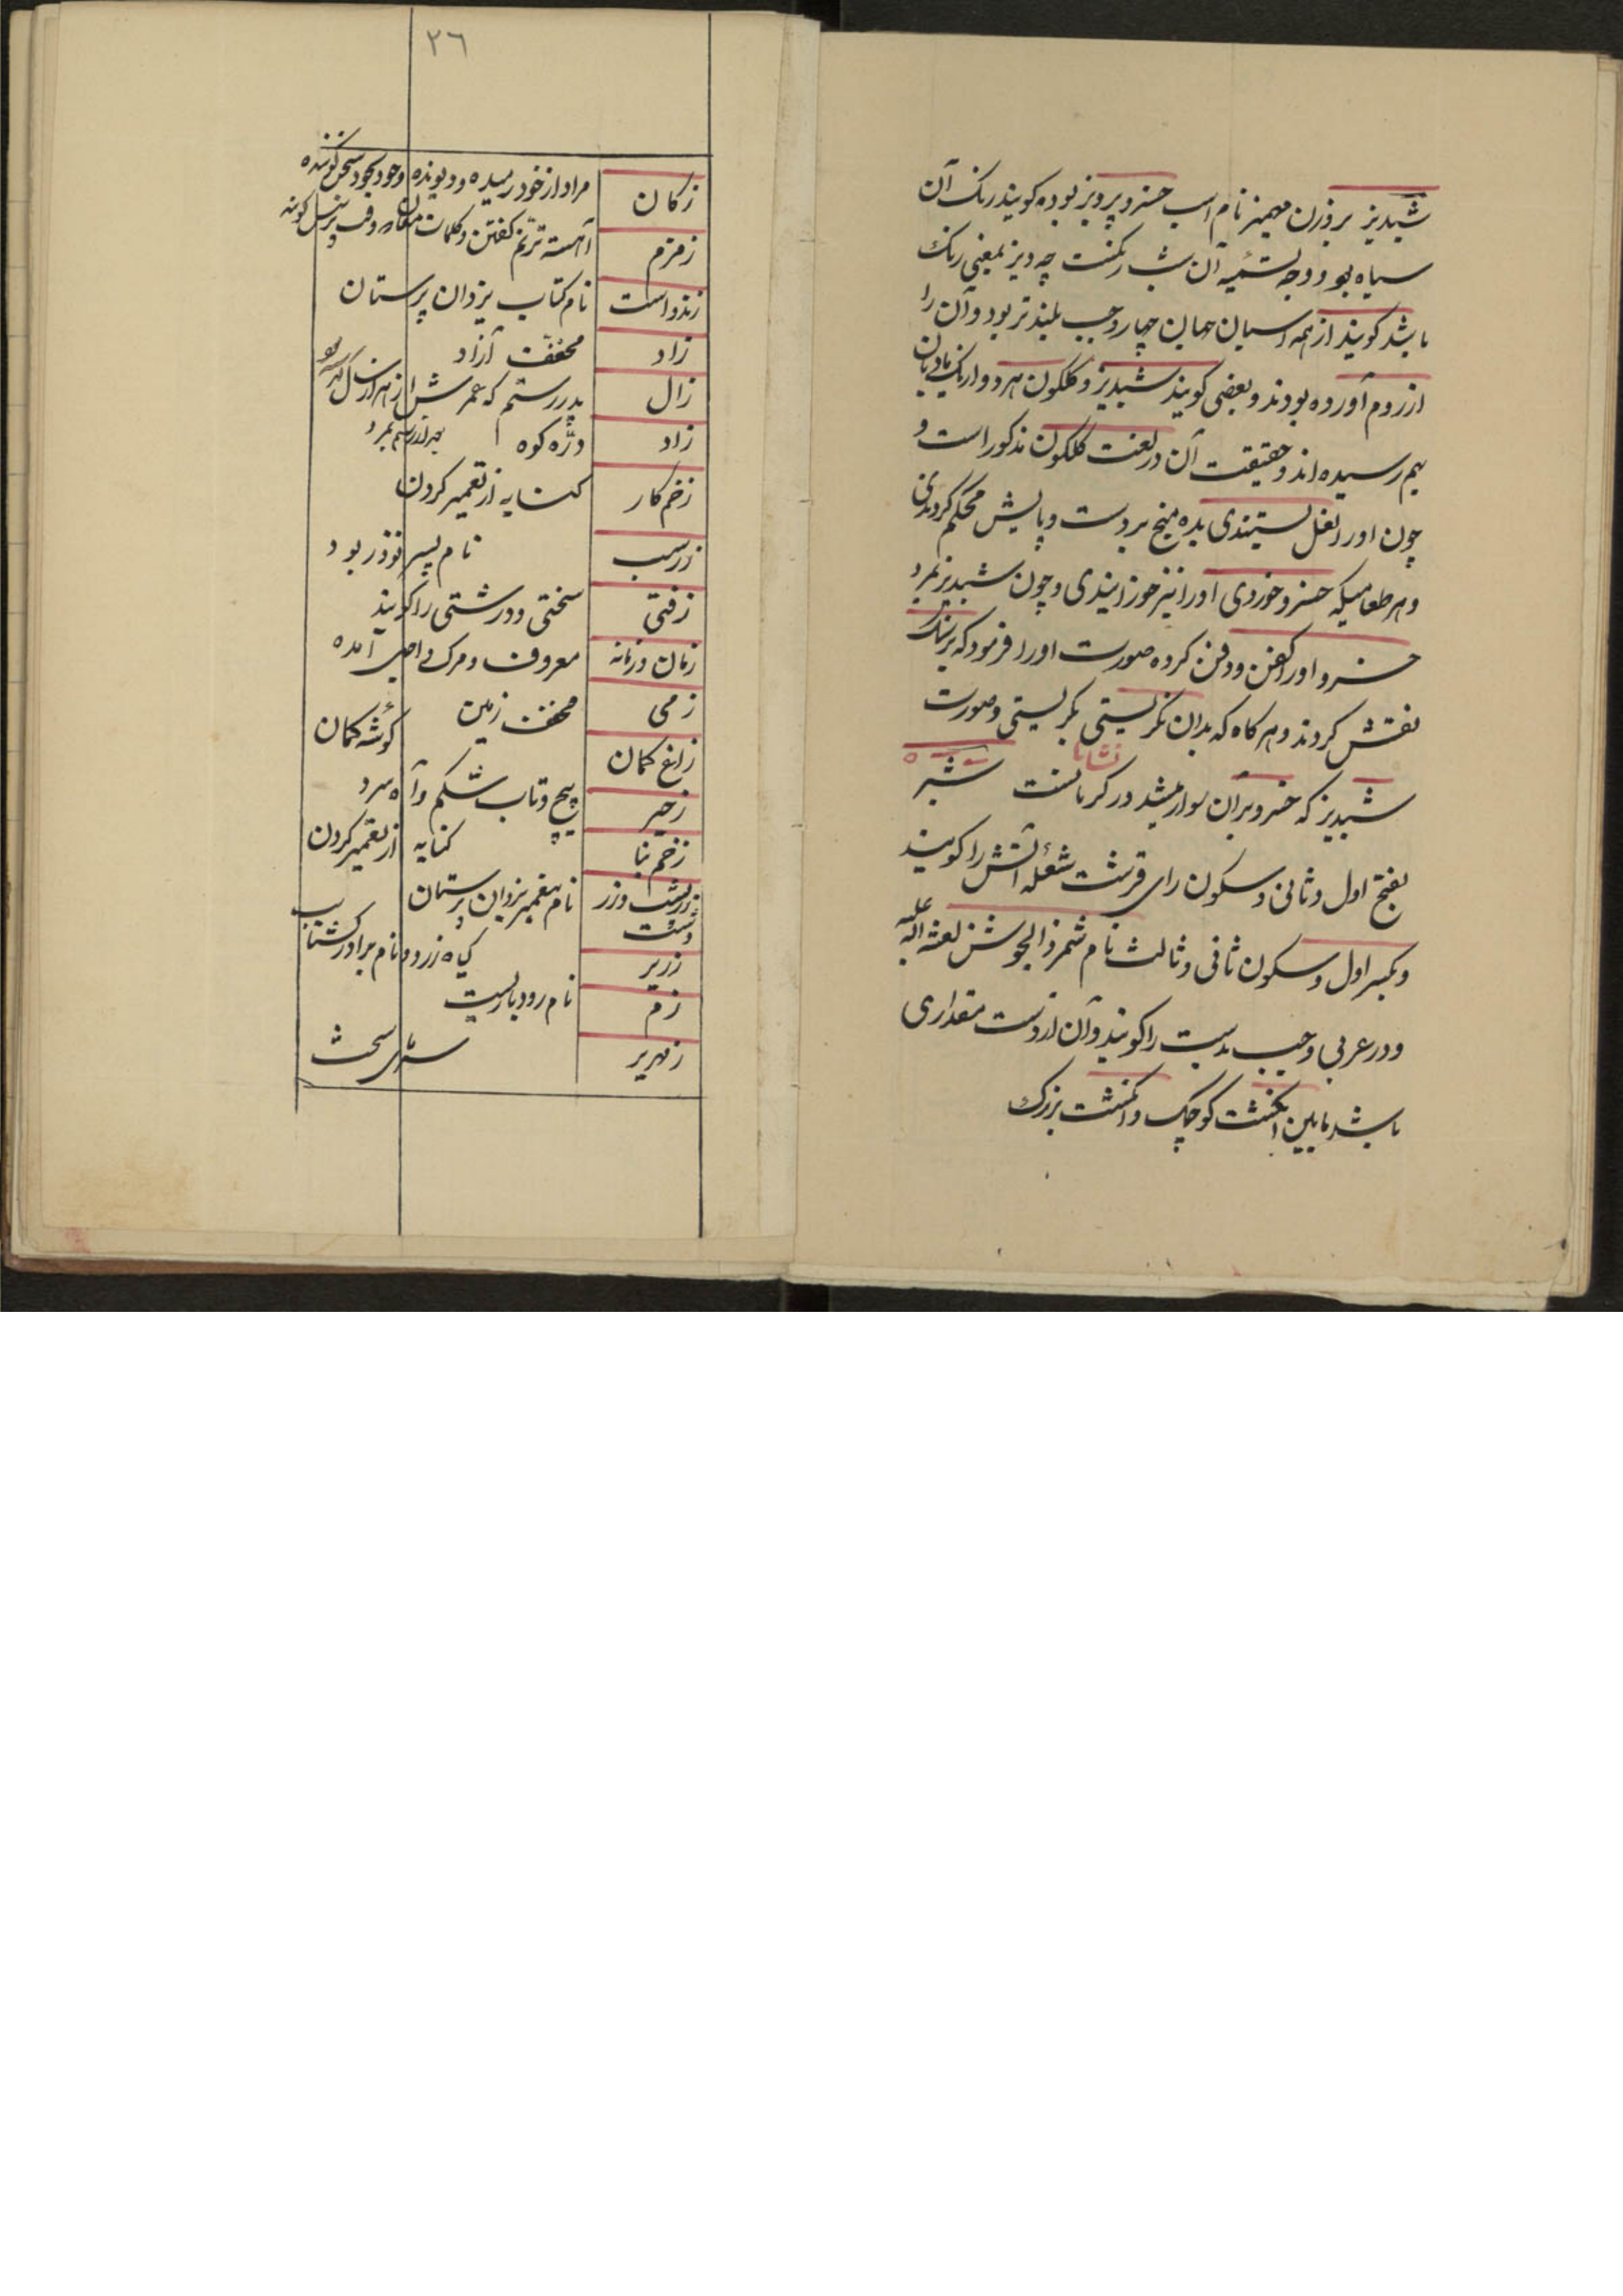 شبدیز بروزن مهمیز نام اسب خسرو پرویز بوده کویند رنک آن
سیاه بود و وجه تسمیه آن شب رنکست چه دیز بمعنی رنک
باشد کویند از همه اسبان جهان چهار وجب بلند تر بود و آن را
از روم آورده بودند و بعضی کویند شبدیز و کلکون هر دو از یک مادیان
بهم رسیده اند و حقیقت آن در لغت کلکون مذکور است و
چون اورا نعل بستندی بده میخ بر دست و پایش محکم کردندی
و هر طعامیکه خسرو خوردی اورا نیز خورانیدی و چون شبدیز بمرد
خسرو اورا کفن و دفن کرده صورت اورا فرمود که بر سنک
نقش کردند و هر کاه که بدان نکریستی بکریستی و صورت
شبدیز که خسرو بران سوار میشد در کرمانست شبر
بفتح اول و ثانی و سکون رای قرشت شعله آتش را کویند
و بکسر اول و سکون ثانی و ثالث نام شمر ذالجوشن لعنه الله علیه
و در عربی وجب بدست را کویند و آن از دست مقداری
باشد مابین انکشت کوچک و انکشت بزرک
۲٦
زکان مراد از خود رمیده و دیونده وخود بخود سخن کوینده
زمزم آهسته ترنم کفتن و کلمات مغان
زند و است نام کتاب یزدان پرستان
زاد مخفف آزاد
زال پدر رستم که عمرش از هزار سال بعد از رستم بمرد
زاد دژه کوه
زخم کار کنایه از تعمیر کردن
زرسب نام پسر نوذر بود
زفتی سختی و درشتی را کویند
زمان و زمانه معروف و مرک و اجل آمده
زمی مخفف زمین
زاغ کمان کوشه کمان
زحیر پیچ و تاب شکم و آه سرد
زخم بنا کنایه از تعمیر کردن
زردشت وزر دشت نام پیغمبر یزدان پرستان
زریر کیاه زرد و نام برادر کشتاسب
زم نام رود باریست
زمهریر سرمای سخت